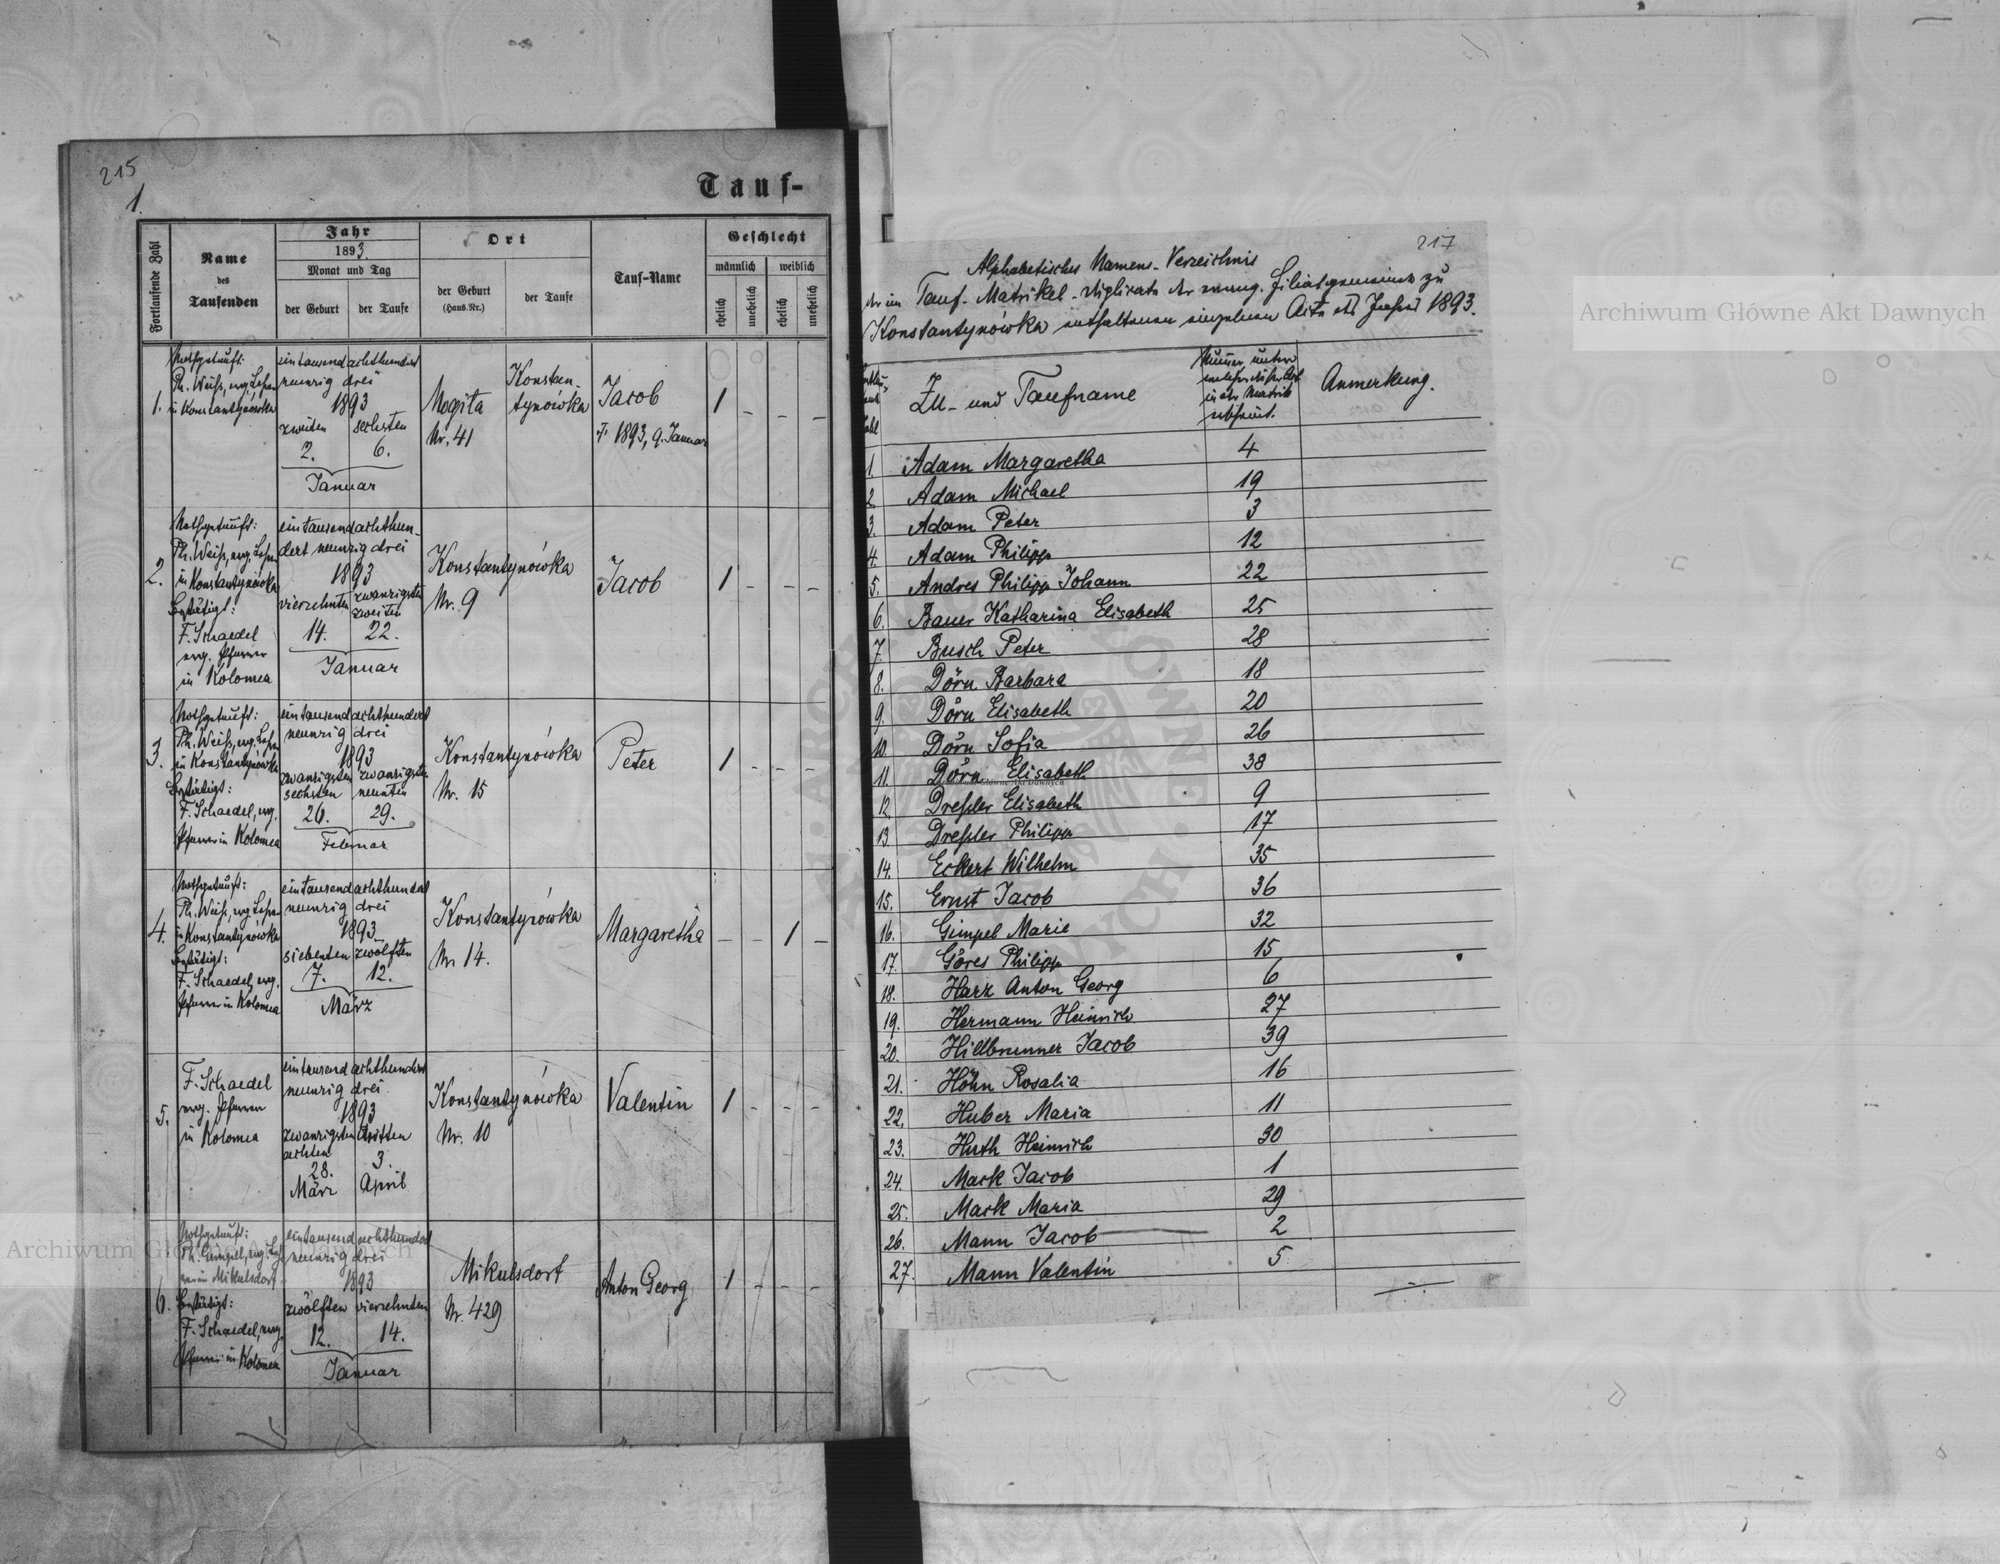 215
1.
Tauf-
Fortlaufende Zahl
Name
des
Taufenden
Jahr
1893.
Monat und Tag
der Geburt
der Taufe
Ort
der Geburt
(Haus-Nr.)
der Taufe
Tauf-Name
Geschlecht
männlich
weiblich
ehelich
unehelich
ehelich
unehelich
1.
Nothgetauft:
Ph. Weiß, evg. Lehrer
in Konstantynówka
eintausend achthundert
neunzig drei
1893
zweiten
sechsten
2.
6.
Januar
Mogiła
Nr. 41
Konstan-
tynówka
Jacob
† 1893, 9. Januar
1 - - -
2.
Nothgetauft:
Ph. Weiß, evg. Lehrer
in Konstantynówka
Bestätigt:
F. Schaedel
evg. Pfarrer
in Kolomea
eintausend achthun-
dert neunzig drei
1893
vierzehnten
zwanzigsten
zweiten
14.
22.
Januar
Konstantynówka
Nr. 9
Jacob
1 - - -
3.
Nothgetauft:
Ph. Weiß, evg. Lehrer
in Konstantynówka
Bestätigt:
F. Schaedel, evg.
Pfarrer in Kolomea
eintausend achthundert
neunzig drei
1893
zwanzigsten zwanzigsten
sechsten neunten
26.
29.
Februar
Konstantynówka
Nr. 15
Peter
1 - - -
4.
Nothgetauft:
Ph. Weiß, evg. Lehrer
in Konstantynówka
Bestätigt:
F. Schaedel, evg.
Pfarrer in Kolomea
eintausend achthundert
neunzig drei
1893
siebenten zwölften
7.
12.
März
Konstantynówka
Nr. 14.
Margaretha
- - 1 -
5.
F. Schaedel
evg. Pfarrer
in Kolomea
eintausend achthundert
neunzig drei
1893
zwanzigsten dritten
achten
28.
3.
März
April
Konstantynówka
Nr. 10
Valentin
1 - - -
6.
Nothgetauft:
Ph. Gimpel, evg. Leh-
rer in Mikulsdorf
Bestätigt:
F. Schaedel, evg.
Pfarrer in Kolomea
eintausend achthundert
neunzig drei
1893
zwölften vierzehnten
12.
14.
Januar
Mikulsdorf
Nr. 429
Anton Georg
1 - - -
217
Alphabetisches Namens-Verzeichnis
der im Tauf-Matrikel-Duplicate der evang. Filialgemeinde zu
Konstantynówka enthaltenen einzelnen Acte des Jahres 1893.
Zu- und Taufname
Nummer unter
welcher dieser Act
in der Matrik
erscheint.
Anmerkung.
1. Adam Margaretha 4
2. Adam Michael 19
3. Adam Peter 3
4. Adam Philipp 12
5. Andres Philipp Johann 22
6. Bauer Katharina Elisabeth 25
7. Busch Peter 28
8. Dörn Barbara 18
9. Dörn Elisabeth 20
10. Dörn Sofia 26
11. Dörn Elisabeth 38
12. Dreßler Elisabeth 9
13. Dreßler Philipp 17
14. Eckert Wilhelm 35
15. Ernst Jacob 36
16. Gimpel Marie 32
17. Göres Philipp 15
18. Harz Anton Georg 6
19. Hermann Heinrich 27
20. Hillbrunner Jacob 39
21. Höhn Rosalia 16
22. Huber Maria 11
23. Huth Heinrich 30
24. Mark Jacob 1
25. Mark Maria 29
26. Mann Jacob 2
27. Mann Valentin 5
Archiwum Główne Akt Dawnych
Archiwum Główne Akt Dawnych